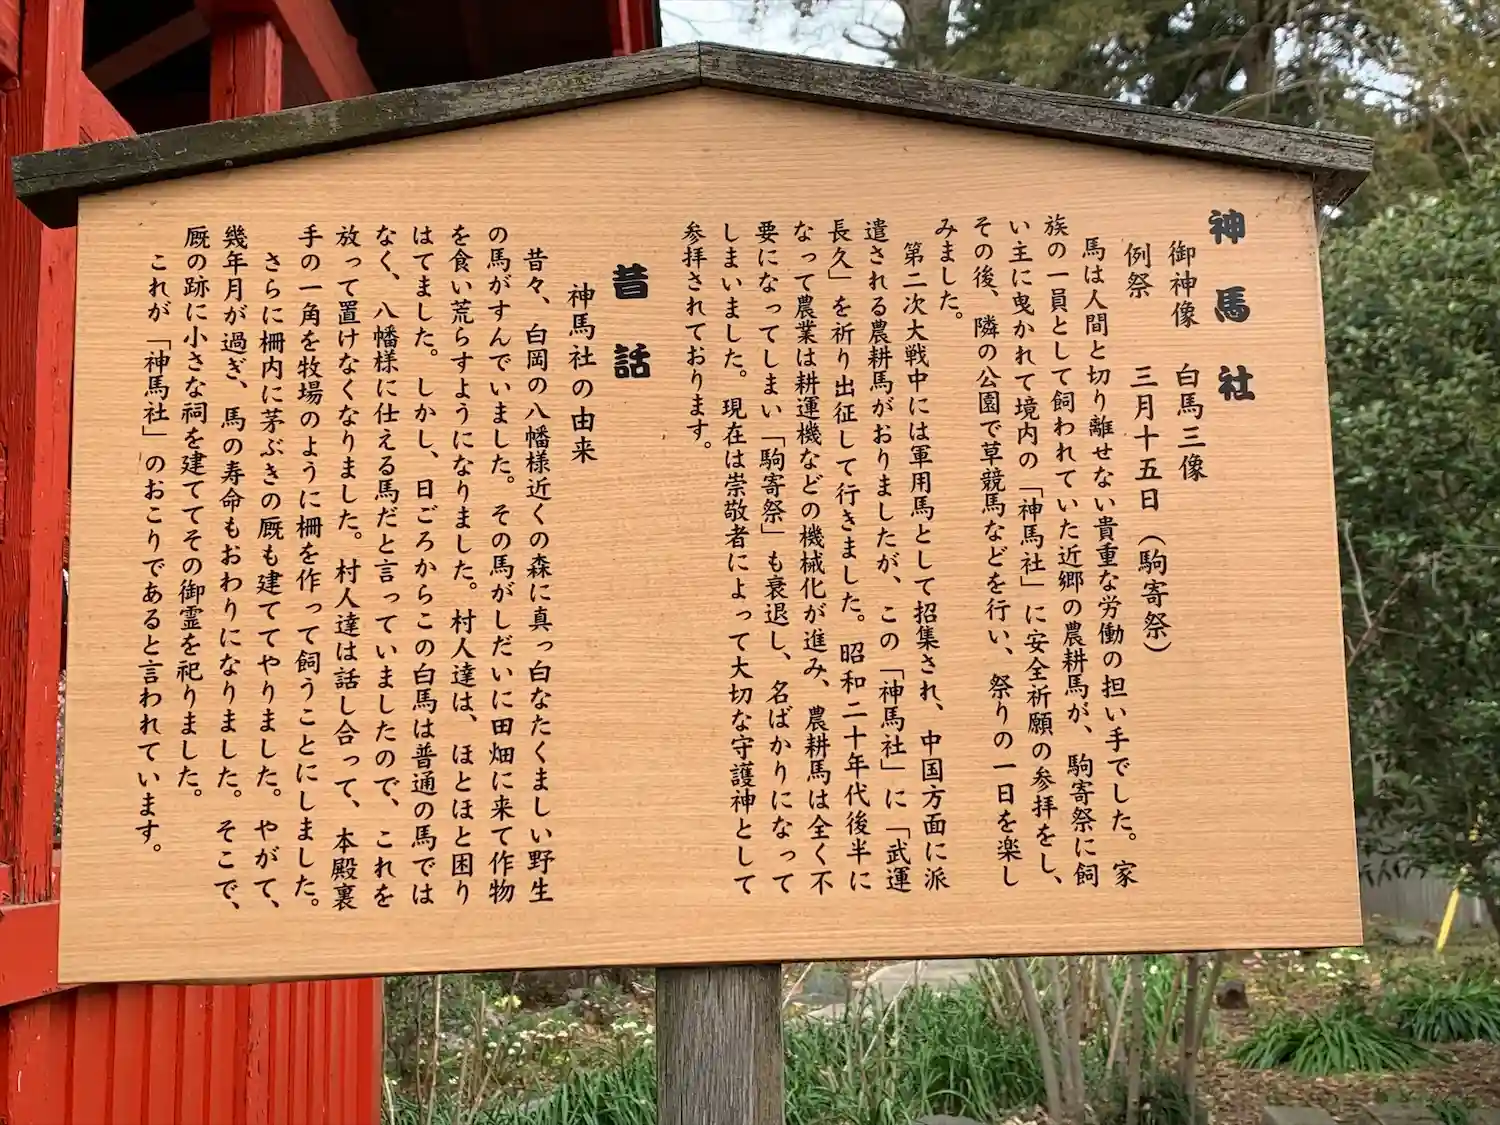 神馬社
御神像　白馬三像
例祭　　三月十五日（駒寄祭）
馬は人間と切り離せない貴重な労働の担い手でした。家
族の一員として飼われていた近郷の農耕馬が、駒寄祭に飼
い主に曳かれて境内の「神馬社」に安全祈願の参拝をし、
その後、隣の公園で草競馬などを行い、祭りの一日を楽し
みました。
第二次大戦中には軍用馬として招集され、中国方面に派
遣される農耕馬がおりましたが、この「神馬社」に「武運
長久」を祈り出征して行きました。昭和二十年代後半に
なって農業は耕運機などの機械化が進み、農耕馬は全く不
要になってしまい「駒寄祭」も衰退し、名ばかりになって
しまいました。現在は崇敬者によって大切な守護神として
参拝されております。
昔話
神馬社の由来
昔々、白岡の八幡様近くの森に真っ白なたくましい野生
の馬がすんでいました。その馬がしだいに田畑に来て作物
を食い荒らすようになりました。村人達は、ほとほと困り
はてました。しかし、日ごろからこの白馬は普通の馬では
なく、八幡様に仕える馬だと言っていましたので、これを
放って置けなくなりました。村人達は話し合って、本殿裏
手の一角を牧場のように柵を作って飼うことにしました。
さらに柵内に茅ぶきの厩も建ててやりました。やがて、
幾年月が過ぎ、馬の寿命もおわりになりました。そこで、
厩の跡に小さな祠を建ててその御霊を祀りました。
これが「神馬社」のおこりであると言われています。